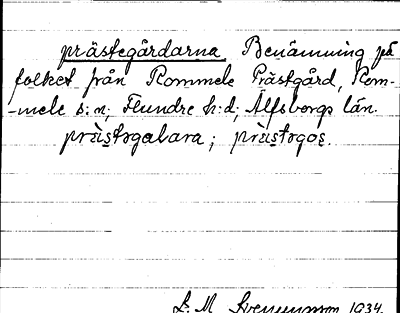 prästegårdarna Benämning på
folket från Rommele Prästgård, Rom-
-mele s:n, Flundre h:d, Älfsborgs län.
prästogalara; prästogos.
L. M. Svensson 1934.